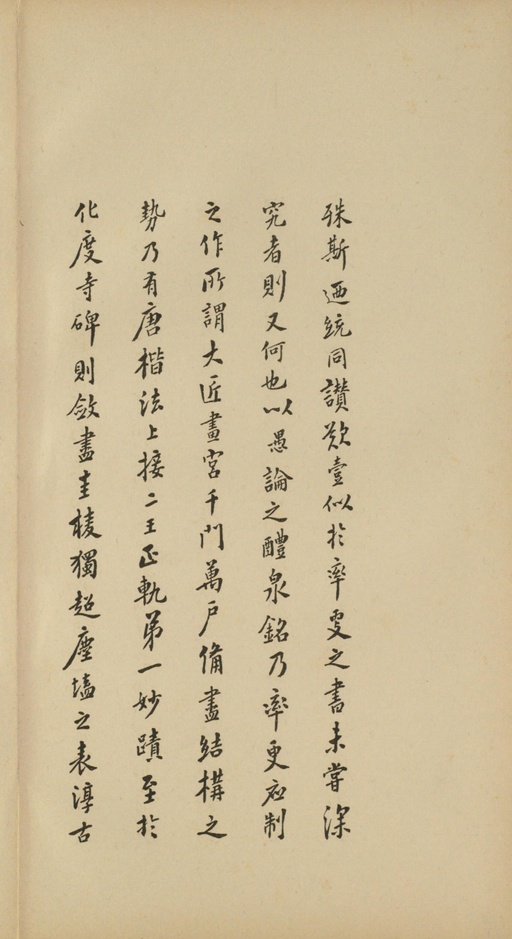 殊斯迺統同讚歎壹似於率更之書未嘗深
究者則又何也以愚論之醴泉銘乃率更應制
之作所謂大匠畫宮千門萬戶備盡結構之
勢乃有唐楷法上接二王正軌第一妙蹟至於
化度寺碑則斂盡圭棱獨超塵壒之表淳古